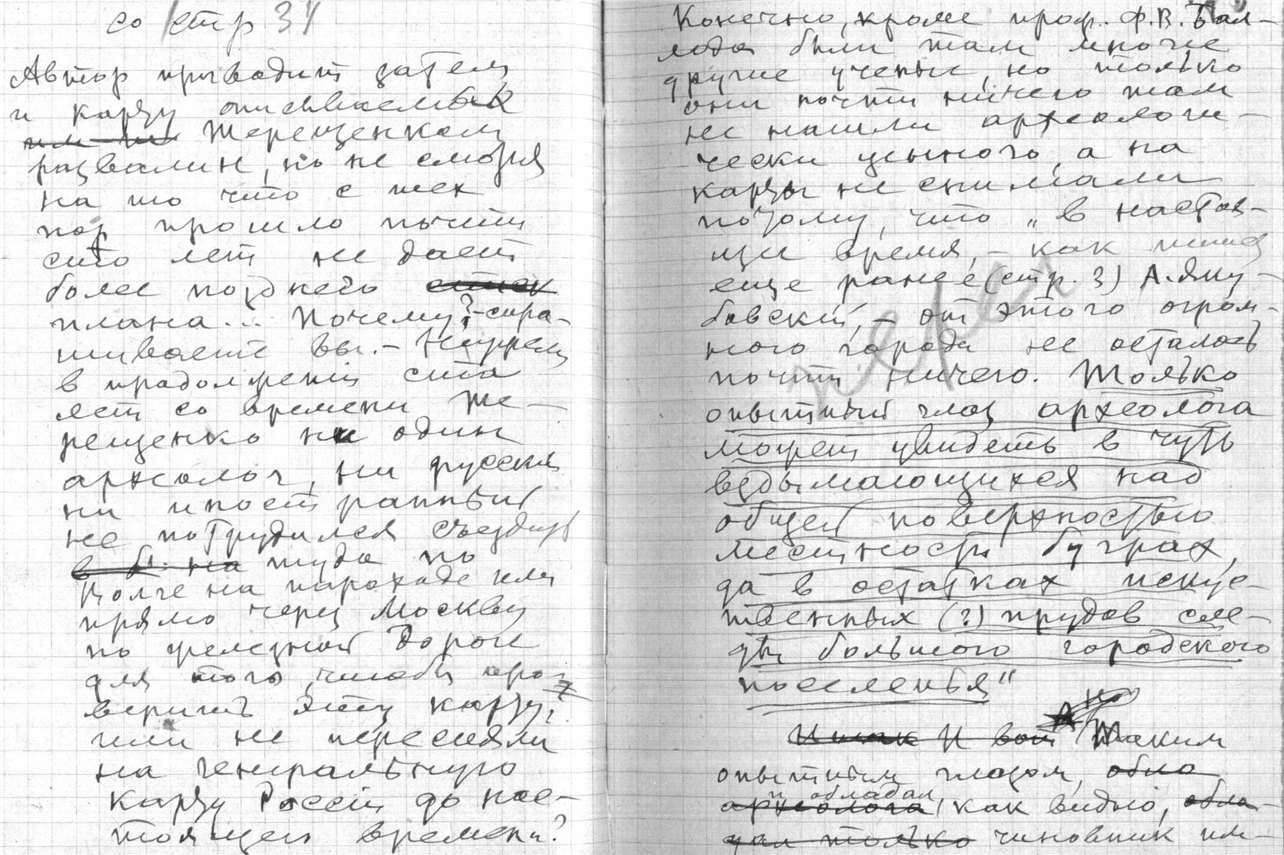 со стр 34
Автор приводит затем
и карту описываемых
Терещенком
развалин, но не смотря
на то что с тех
пор прошло почти
сто лет не дает
более позднего
плана... Почему? - спра-
шиваете вы. - Неужели
в продолжении ста
лет со времени Те-
рещенко ни один
археолог, ни русский
ни иностранный
не потрудился съездить
туда по
Волге на пароходе или
прямо через Москву
по железной дороге
для того, чтобы про-
верить эту карту,
или не пересняли
на генеральную
карту России до нас-
тоящего времени?
Конечно, кроме проф. Ф.В. Бал-
лода были там многие
другие ученые, но только
они почти ничего там
не нашли археологи-
чески ценного, а на
карты не снимали
потому, что „в настоя-
щее время, - как писал
еще ранее (стр. 3) А. Яку-
бовский, - от этого огром-
ного города не осталось
почти ничего. Только
опытный глаз археолога
может увидеть в чуть
вздымающихся над
общей поверхностью
местности буграх,
да в остатках искус-
ственных (?) прудов сле-
ды большого городского
поселенья"
И вот Таким
опытным глазом,
и обладал
как видно,
чиновник им-